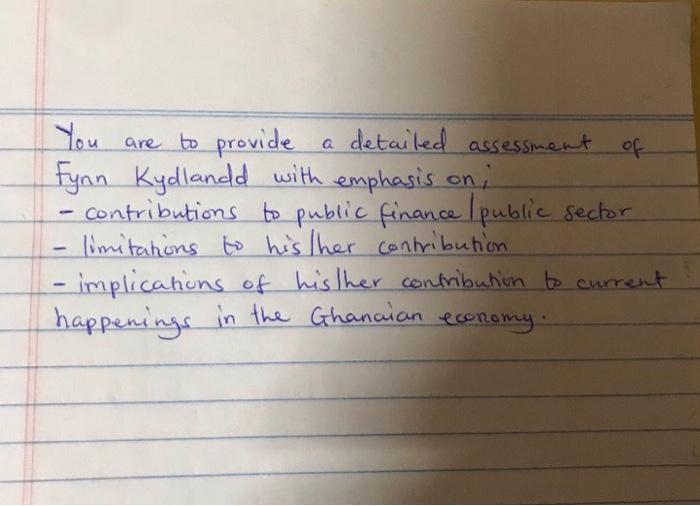 You are to provide a detailed assessment of
Fynn Kydlandd with emphasis on;
- contributions to public finance/public sector
- limitations to his/her contribution
- implications of his/her contribution to current
happenings in the Ghanaian economy.